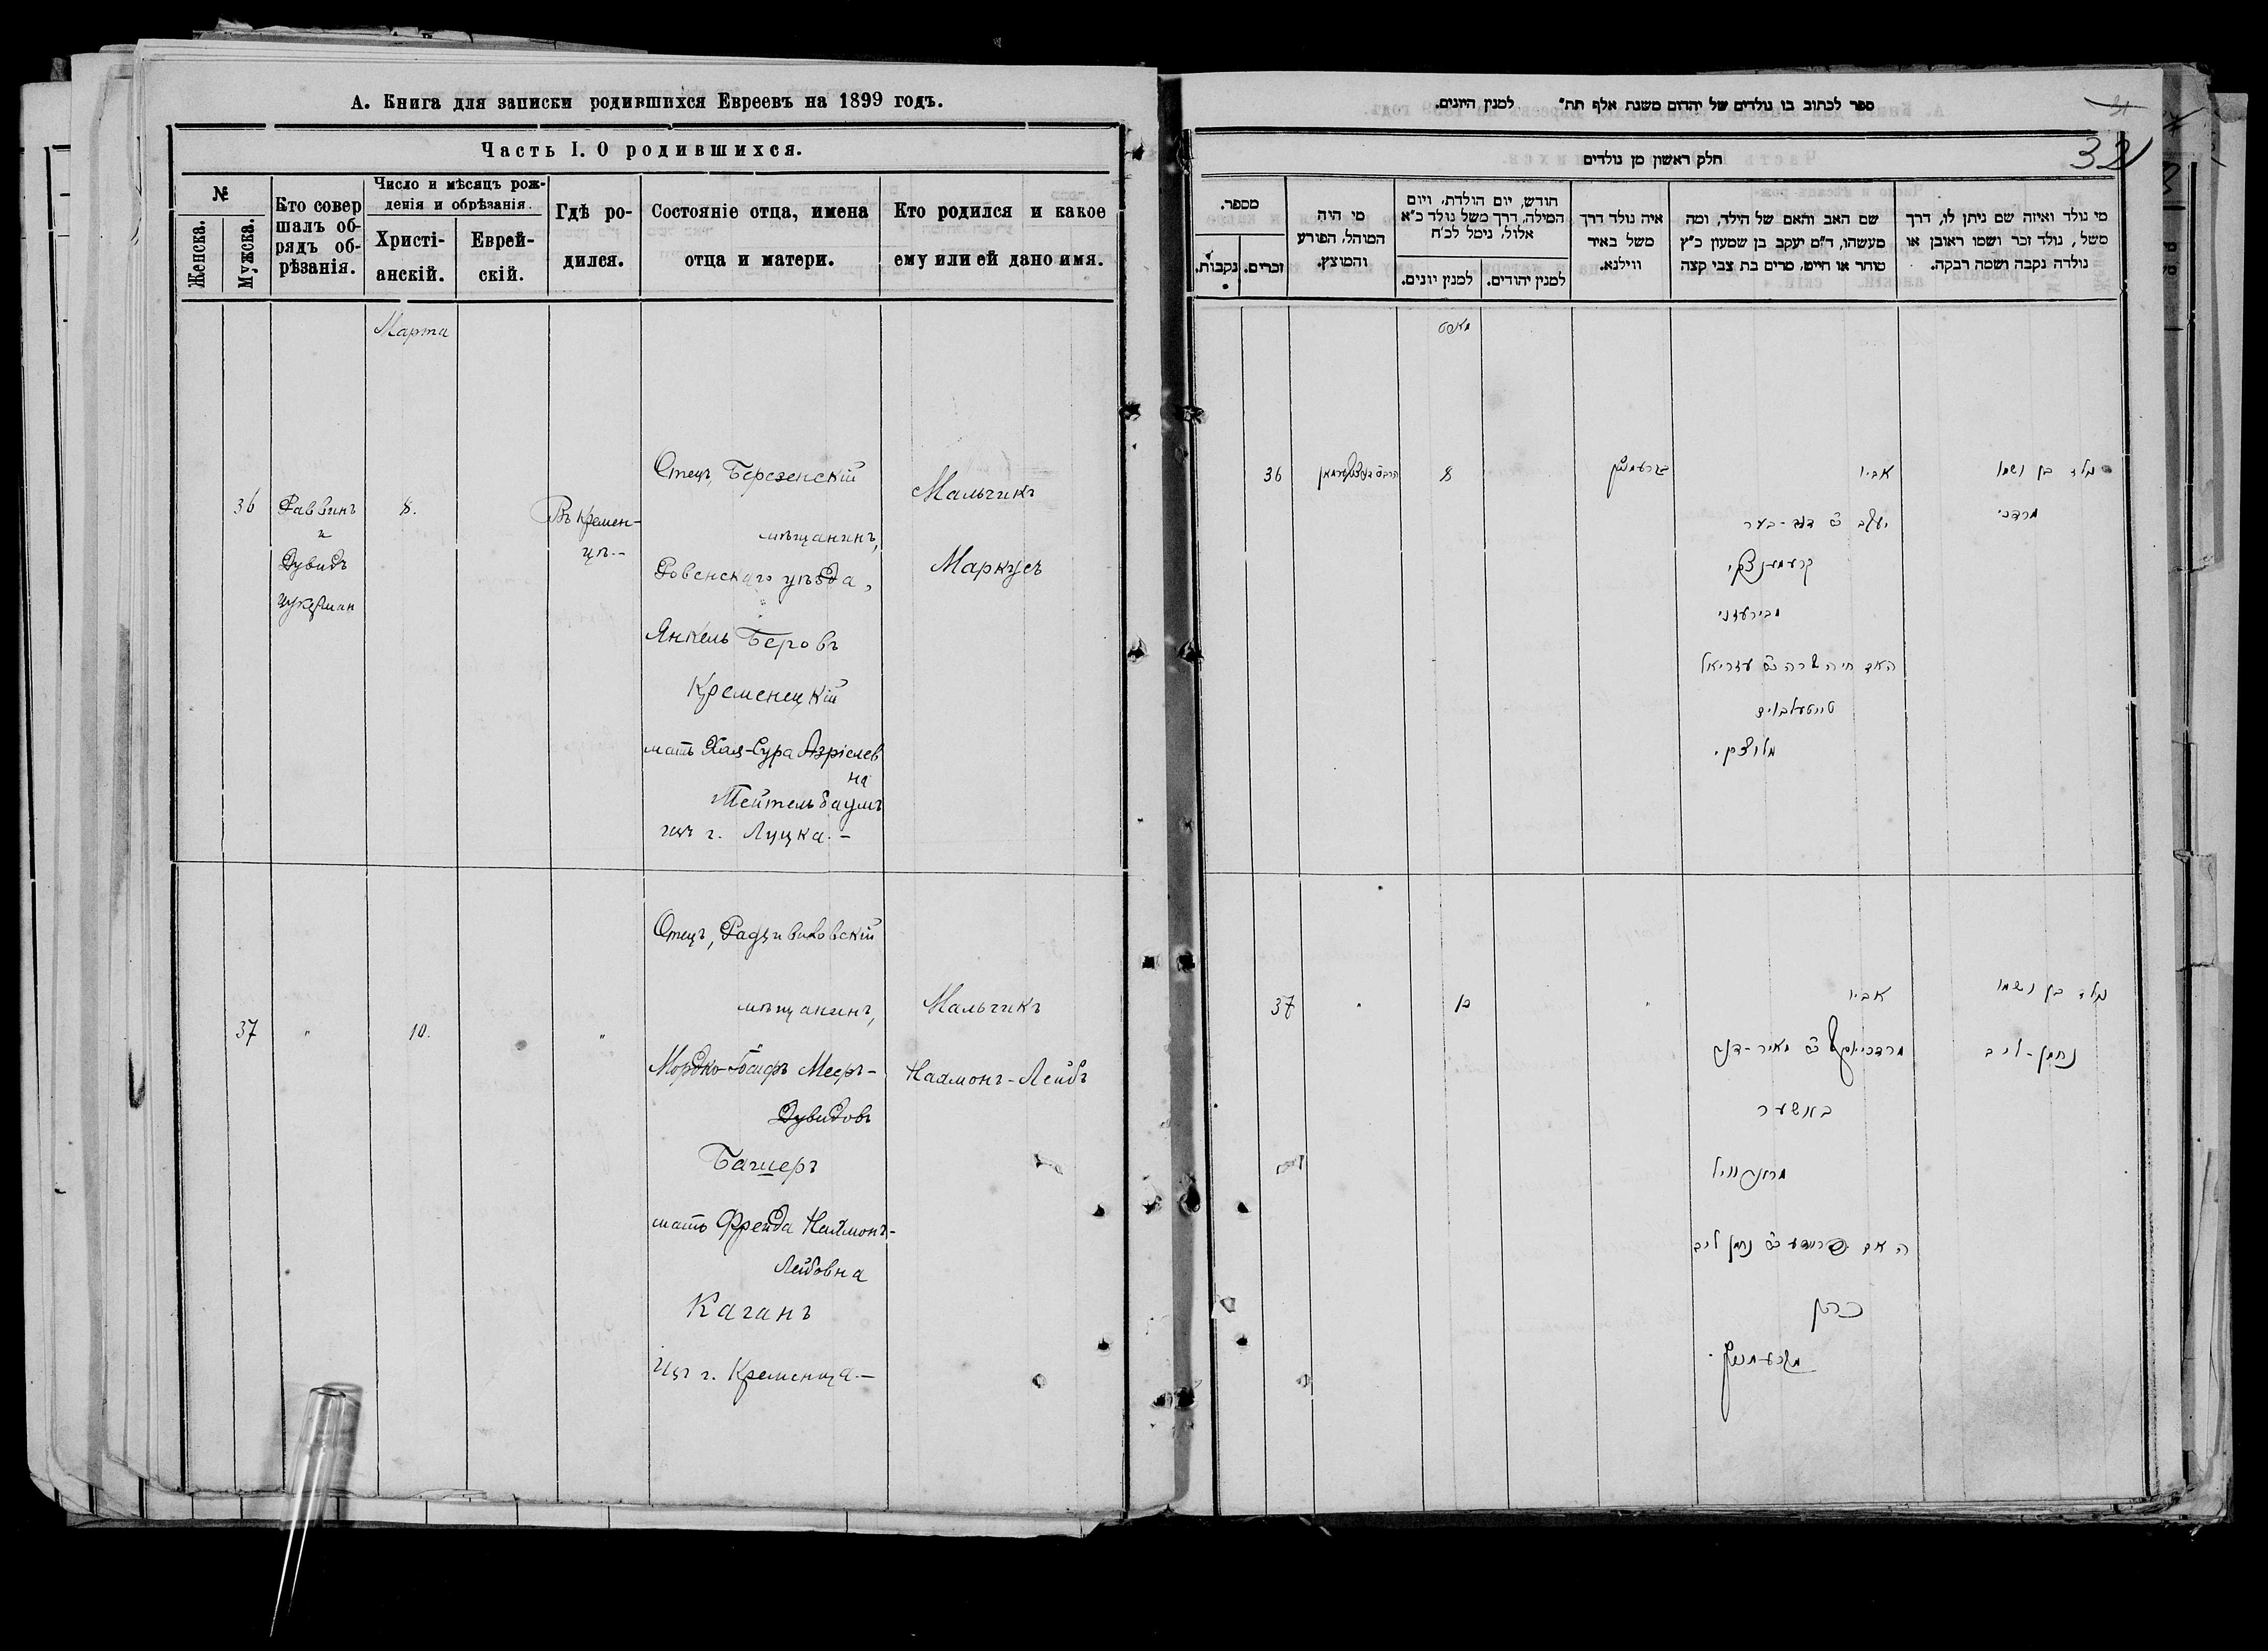 А. Книга для записки родившихся Евреевъ на 1899 годъ.
Часть I. О родившихся.
№
Женска.
Мужска.
Кто совер
шалъ об-
рядъ об-
рѣзанія.
Число и мѣсяцъ рож-
денія и обрѣзанія.
Христі-
анскій.
Еврей-
скій.
Гдѣ ро-
дился.
Состояніе отца, имена
отца и матери.
Кто родился и какое
ему или ей дано имя.
Марта
36
Раввинъ
и
Дувидъ
Цукерман
8.
Въ Кремен-
цѣ.-
Отецъ, Березенскій
мѣщанинъ,
Ровенскаго уѣзда,
Янкель Беровъ
Кременецкій
мать Хая-Сура Азріелев
на
Тейтельбаумъ
изъ г. Луцка.-
Мальчикъ
Маркусъ
37
"
10.
"
Отецъ, Радзивиловскій
мѣщанинъ,
Мордко-Іосифъ Мееръ-
Дувидовъ
Башеръ
мать Фрейда Нахмонъ-
Лейбовна
Каганъ
изъ г. Кременца-
Мальчикъ
Нахмонъ-Лейбъ
ספר לכתוב בו נולדים של יהדום משנת אלף תת" למנין היונים.
32
חלק ראשון מן נולדים
מספר.
נקבות.
זכרים.
מי היה
המוהל, הפורע
והמוצץ.
חודש, יום הולדת, ויום
המילה, דרך משל נולד כ"א
אלול, נימל לכ"ח
למנין יונים.
למנין יהודים.
איה נולד דרך
משל באיר
ווילנא.
שם האב והאם של הילד, ומה
מעשהו, ד"מ יעקב בן שמעון כ"ץ
סוחר או חייט, מרים בת צבי קצה
מי נולד ואיזה שם ניתן לו, דרך
משל, נולד זכר ושמו ראובן או
נולדה נקבה ושמה רבקה.
מארט
36
8
אביו
יעקב ב" דוב-בער
קרעמענצקי
האם חיה שרה ב" עזריאל
טייטעלבוים
מלוצק.
נולד בן ושמו
מרדכי
37
"
10
"
אביו
מרדכי יוסף ב" מאיר-דוד
באשער
האם פריידע ב" נחמן ליב
כהן
מקרעמניץ.
נולד בן ושמו
נחמן-ליב